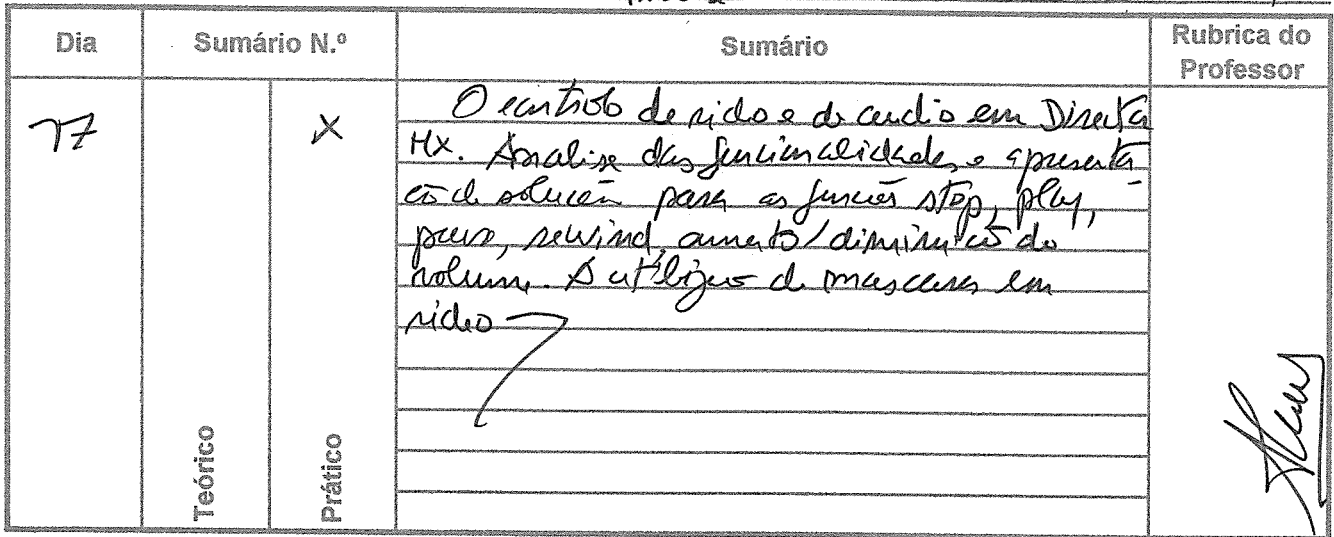 Dia Sumário N.º Sumário Rubrica do Professor
17 X
O controlo de video e de audio em Director
MX. Analise das funcionalidades e apresenta
ção de solução para as funções stop, play,
pause, rewind, aumento/diminuição do
volume. A utilização de mascaras em
video
Teórico
Prático